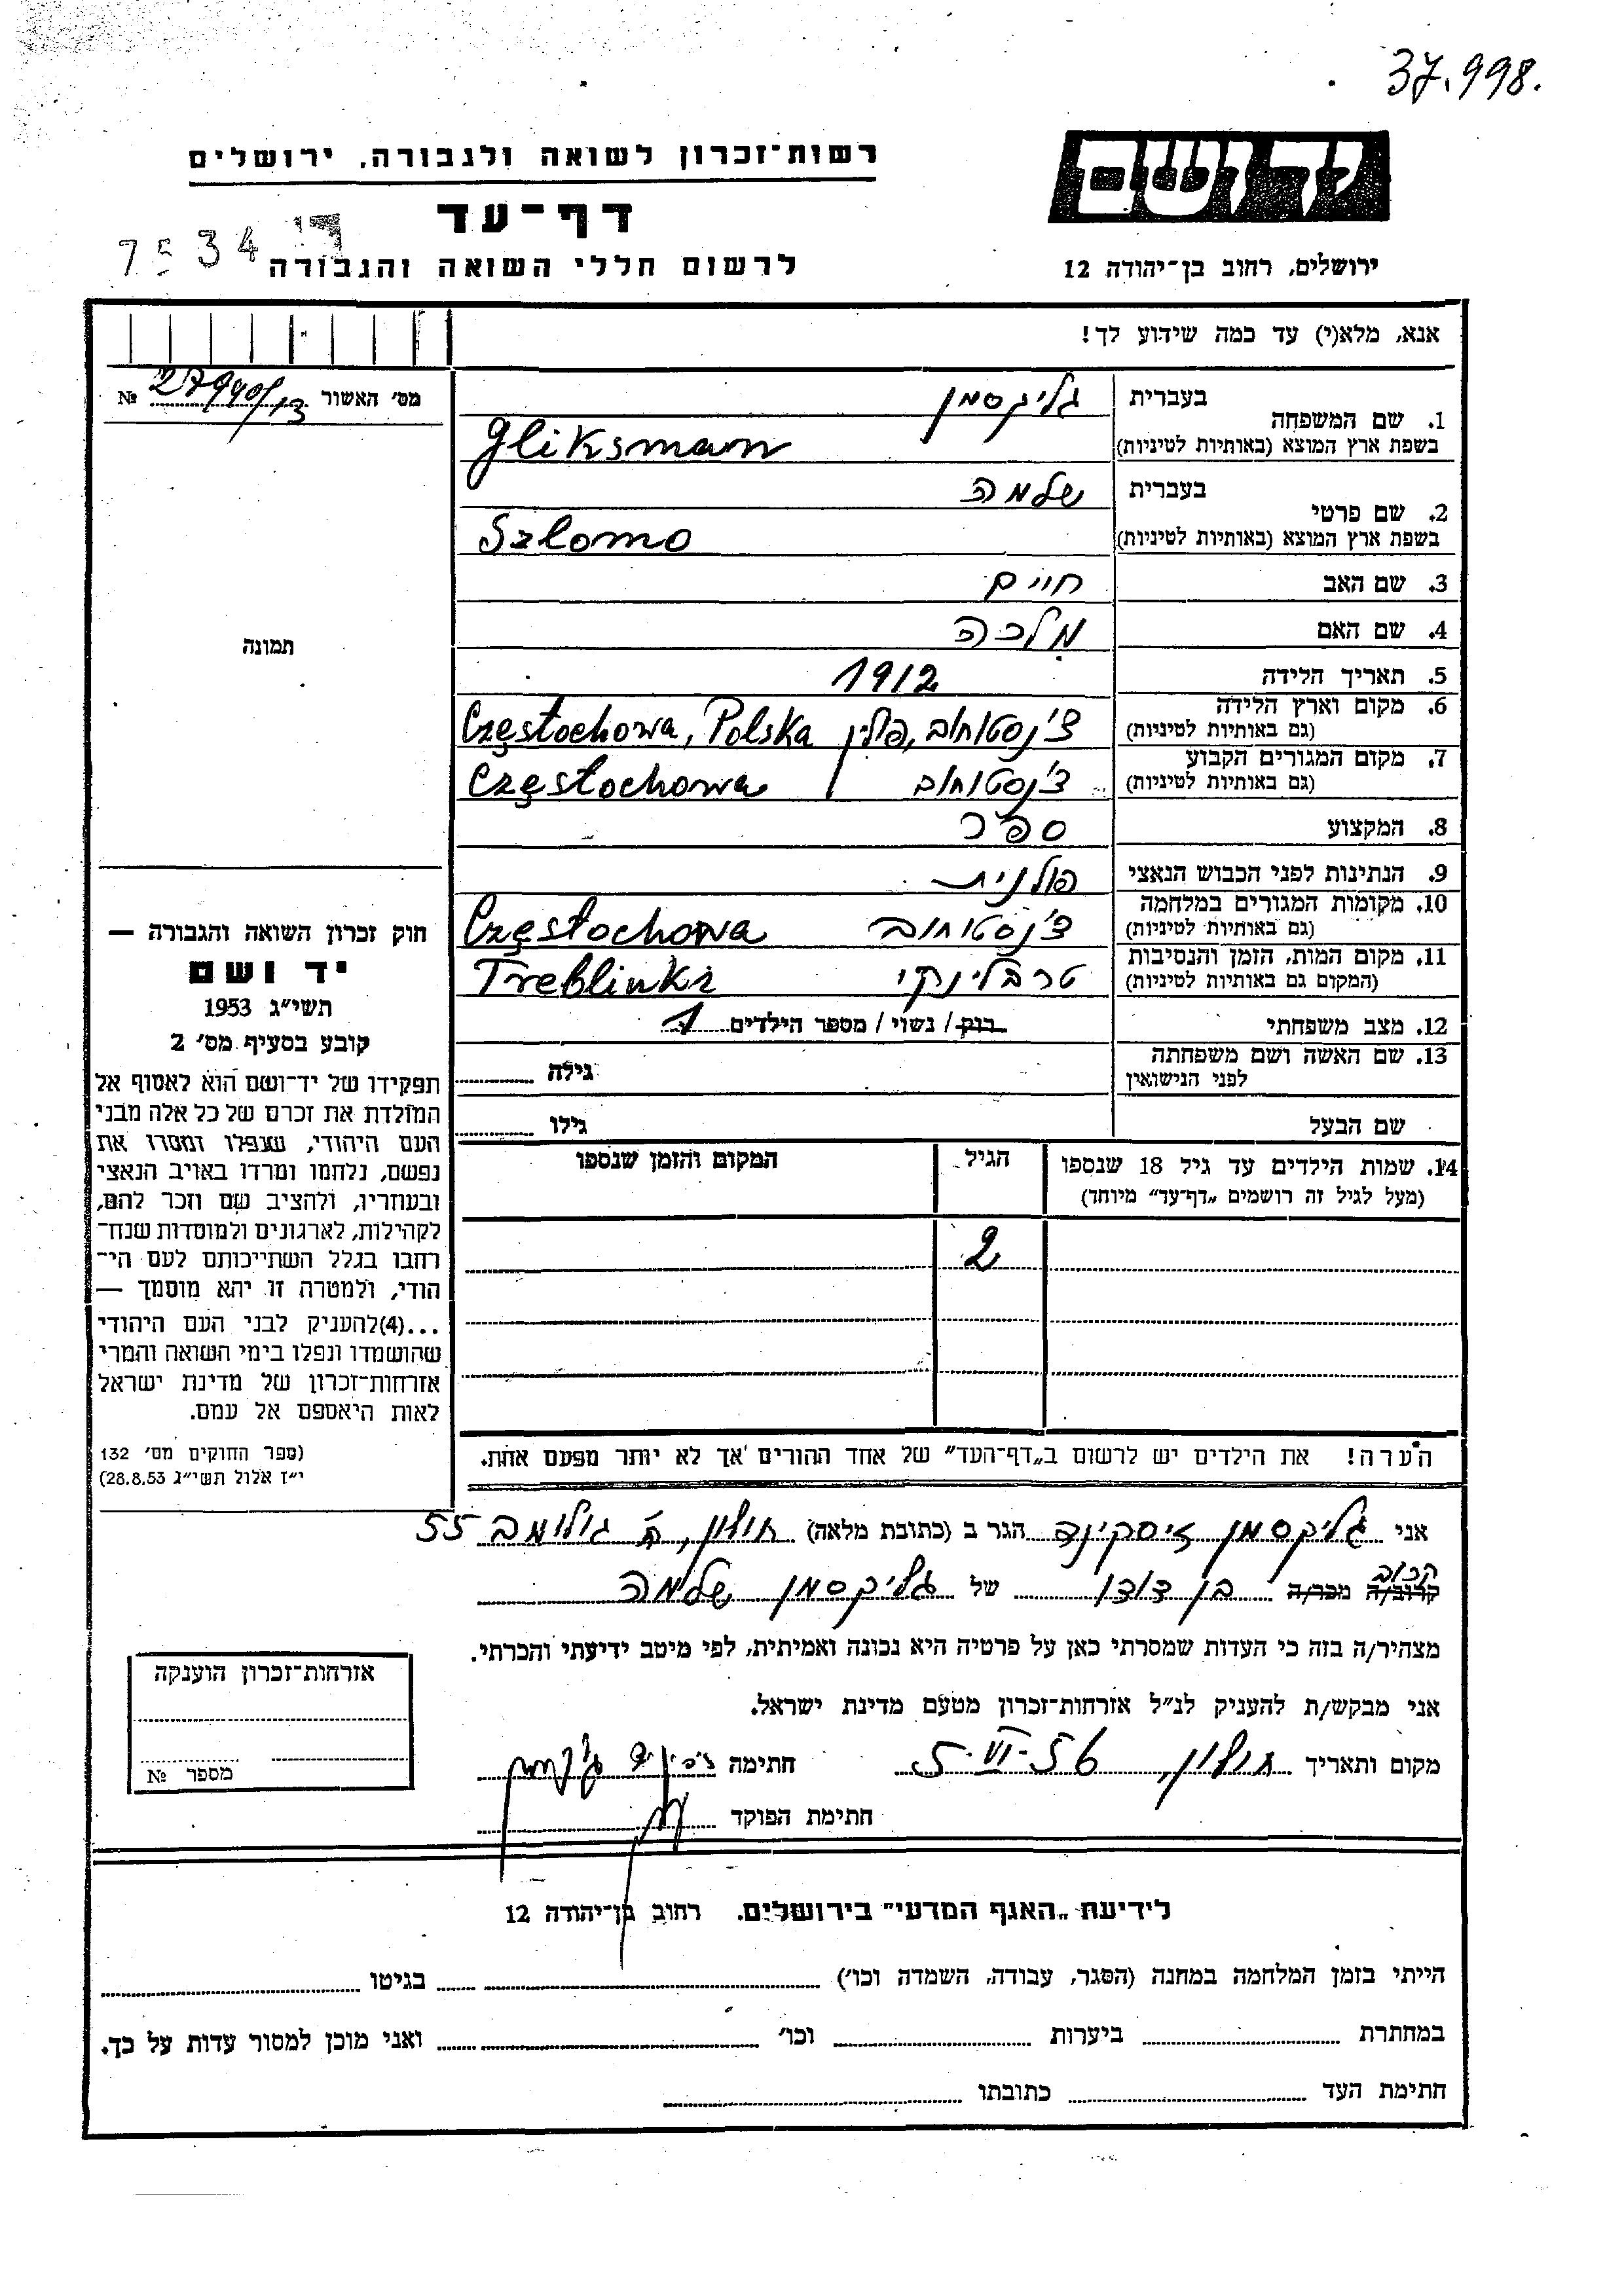 37.998.
יד ושם
רשות־זכרון לשואה ולגבורה, ירושלים
דף־עד
7534
לרשום חללי השואה והגבורה
ירושלים, רחוב בן־יהודה 12
אנא, מלא(י) עד כמה שידוע לך!
מס׳ האשור 27940/13 №
1. שם המשפחה
בעברית גליקסמן
בשפת ארץ המוצא (באותיות לטיניות) Gliksman
2. שם פרטי
בעברית שלמה
בשפת ארץ המוצא (באותיות לטיניות) Szlomo
3. שם האב חיים
4. שם האם מלכה
5. תאריך הלידה 1912
6. מקום וארץ הלידה
(גם באותיות לטיניות) צ'נסטוחוב, פולין Częstochowa, Polska
7. מקום המגורים הקבוע
(גם באותיות לטיניות) צ'נסטוחוב Częstochowa
8. המקצוע ספר
9. הנתינות לפני הכבוש הנאצי פולנית
10. מקומות המגורים במלחמה
(גם באותיות לטיניות) צ'נסטוחוב Częstochowa
11. מקום המות, הזמן והנסיבות
(המקום גם באותיות לטיניות) טרבלינקי Treblinki
12. מצב משפחתי רווק / נשוי / מספר הילדים 1
13. שם האשה ושם משפחתה
לפני הנישואין
גילה
שם הבעל
גילו
14. שמות הילדים עד גיל 18 שנספו
(מעל לגיל זה רושמים „דף־עד" מיוחד)
הגיל
המקום והזמן שנספו
2
הערה! את הילדים יש לרשום ב„דף־העד" של אחד ההורים אך לא יותר מפעם אחת.
תמונה
חוק זכרון השואה והגבורה —
יד ושם
תשי״ג 1953
קובע בסעיף מס׳ 2
תפקידו של יד־ושם הוא לאסוף אל
המולדת את זכרם של כל אלה מבני
העם היהודי, שנפלו ומסרו את
נפשם, נלחמו ומרדו באויב הנאצי
ובעוזריו, ולהציב שם וזכר להם,
לקהילות, לארגונים ולמוסדות שנח־
רבו בגלל השתייכותם לעם הי־
הודי, ולמטרה זו יהא מוסמך —
...(4)להעניק לבני העם היהודי
שהושמדו ונפלו בימי השואה והמרי
אזרחות־זכרון של מדינת ישראל
לאות היאספם אל עמם.
(ספר החוקים מס׳ 132
י״ז אלול תשי״ג 28.8.53)
אני גליקסמן זיסקינד הגר ב (כתובת מלאה) חולון, גולומב 55
קרוב
קרוב/ה מכר/ה בן דודו של גליקסמן שלמה
מצהיר/ה בזה כי העדות שמסרתי כאן על פרטיה היא נכונה ואמיתית, לפי מיטב ידיעתי והכרתי.
אני מבקש/ת להעניק לנ״ל אזרחות־זכרון מטעם מדינת ישראל.
מקום ותאריך חולון, 5.VI.56 חתימה
חתימת הפוקד
אזרחות־זכרון הוענקה
מספר №
לידיעת „האגף המדעי" בירושלים. רחוב בן־יהודה 12
הייתי בזמן המלחמה במחנה (הסגר, עבודה, השמדה וכו׳) בגיטו
במחתרת ביערות וכו׳ ואני מוכן למסור עדות על כך.
חתימת העד כתובתו